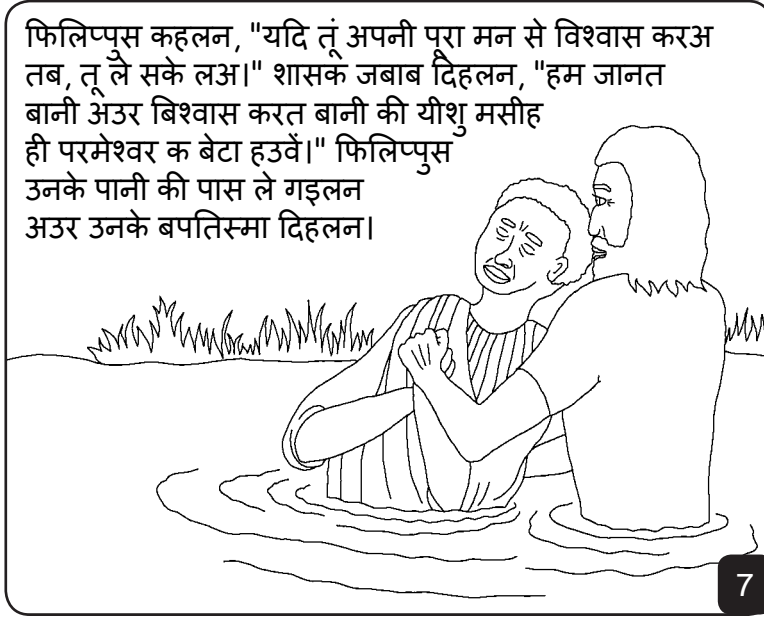 फिलिप्पुस कहलन, "यदि तूं अपनी पूरा मन से विश्वास करअ
तब, तू ले सके लअ।" शासक जबाब दिहलन, "हम जानत
बानी अउर बिश्वास करत बानी की यीशु मसीह
ही परमेश्वर क बेटा हउवें।" फिलिप्पुस
उनके पानी की पास ले गइलन
अउर उनके बपतिस्मा दिहलन।
7